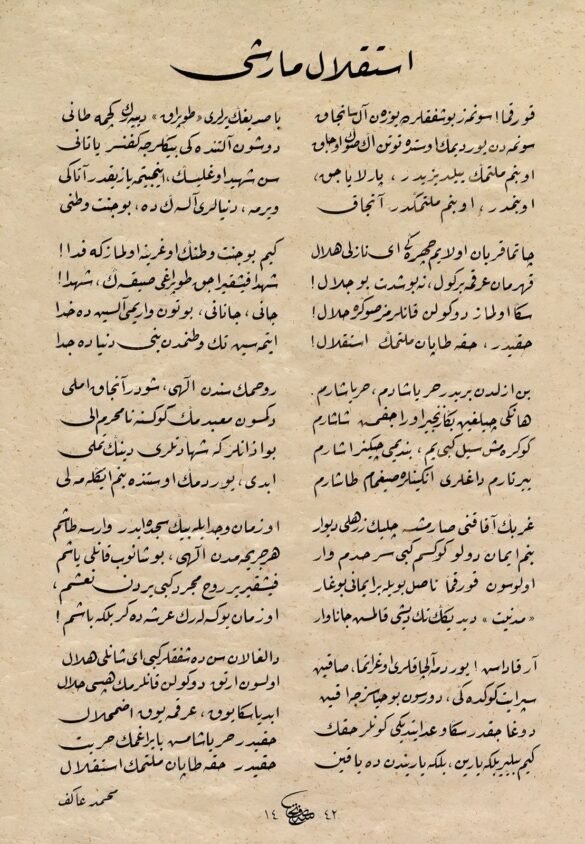 استقلال مارشی
قورقما! سونمز بو شفقلرده یوزن آل سانجاق
سونمه‌دن یوردیمك اوستنده توتن اك صوك اوجاق
او بنم ملتمك ییلدیزیدر، پارلایاجق،
او بنمدر، او بنم ملتمكدر آنجاق
چاتما قربان اولایم چهره‌كی ای نازلی هلال
قهرمان عرقمه بر كول، نه بو شدت بو جلال!
سكا اولماز دوكولن قانلرمز صوكره حلال!
حقیدر، حقه طاپان ملتمك استقلال!
بن ازلدن بریدر حر یاشادم، حر یاشارم.
هانكی چیلغین بكا زنجیر اوراجقمش شاشارم
كوكره‌مش سیل كبی‌یم، بندیمی چیكنر اشارم
ییرتارم داغلری انكینلره صیغمام طاشارم
غربك آفاقنی صارمشسه چلیك زرهلی دیوار
بنم ایمان دولو كوكسم كبی سرحدم وار
اولوسون قورقما ناصل بویله بر ایمانی بوغار
«مدنیت» دیدیكك تك دیشی قالمش جاناوار
آرقاداش! یوردمه آلچاقلری اوغراتما، صاقین
سپر ایت كوكده‌كی، دورسون بو حیاسزجه آقین
دوغاجقدر سكا وعد ایتدیكی كونلر حقك
كیم بیلیر بلكه یارین، بلكه یاریندن ده یاقین
باصدیغك یرلری «طوپراق» دییه‌رك كچمه طانی
دوشون آلتنده كی بیكلرجه كفنسز یاتانی
سن شهید اوغلیسك، اینجیتمه یازیقدر آتاكی
ویرمه، دنیالری آلسه‌ك ده، بو جنت وطنی
كیم بو جنت وطنك اوغرینه اولماز كه فدا!
شهدا فیشقیراجق طوپراغی صیقسه‌ك، شهدا!
جانی، جانانی، بوتون واریمی آلسین ده خدا
ایتمه‌سین تك وطنمدن بنی دنیاده جدا
روحمك سندن الهی، شودر آنجاق املی
دكمسون معبدمك كوكسنه نامحرم الی
بو اذانلر كه شهادتلری دینك تملی
ابدی، یوردمك اوستنده بنم ایكله‌مه‌لی
او زمان وجد ایله بیك سجده ایدر وارسه طاشم
هر جریحه‌مدن الهی، بوشانوب قانلی یاشم
فیشقیریر روح مجرد كبی یردن نعشم،
او زمان یوكسه‌لرك عرشه ده‌كر بلكه باشم!
دالغالان سن ده شفقلر كبی ای شانلی هلال
اولسون ارتق دوكولن قانلرمك هپسی حلال
ابدیا سكا یوق، عرقمه یوق اضمحلال
حقیدر حر یاشامش بایراغمك حریت
حقیدر حقه طاپان ملتمك استقلال
محمد عاكف
١٤ ٤٢